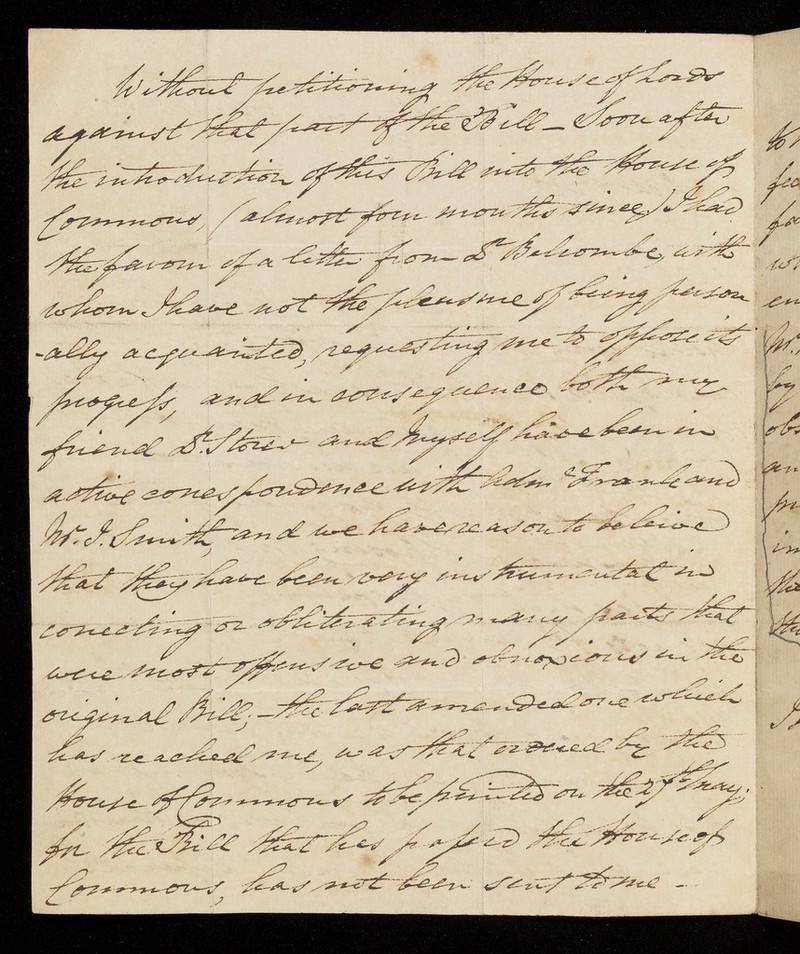 Without petitioning the House of Lords
against that part of the Bill – Soon after
the introduction of this Bill into the House of
Commons, (almost four months since) I had
the favour of a letter from Dr Belcombe, with
whom I have not the pleasure of being person
-ally acquainted, requesting me to oppose its
progress, and in consequence both my
friend Dr. Storer and Myself have been in
active correspondence with Adml Frank and
Mr. J. Smith, and we have reason to beleive
that they have been very instrumental in
correcting or obliterating many parts that
were most offensive and obnoxious in the
original Bill; – the last amended one which
has reached me, was that ordered by the
House of Commons to be printed on the May.
for the Bill that has passed the House of
Commons, has not been sent to me –